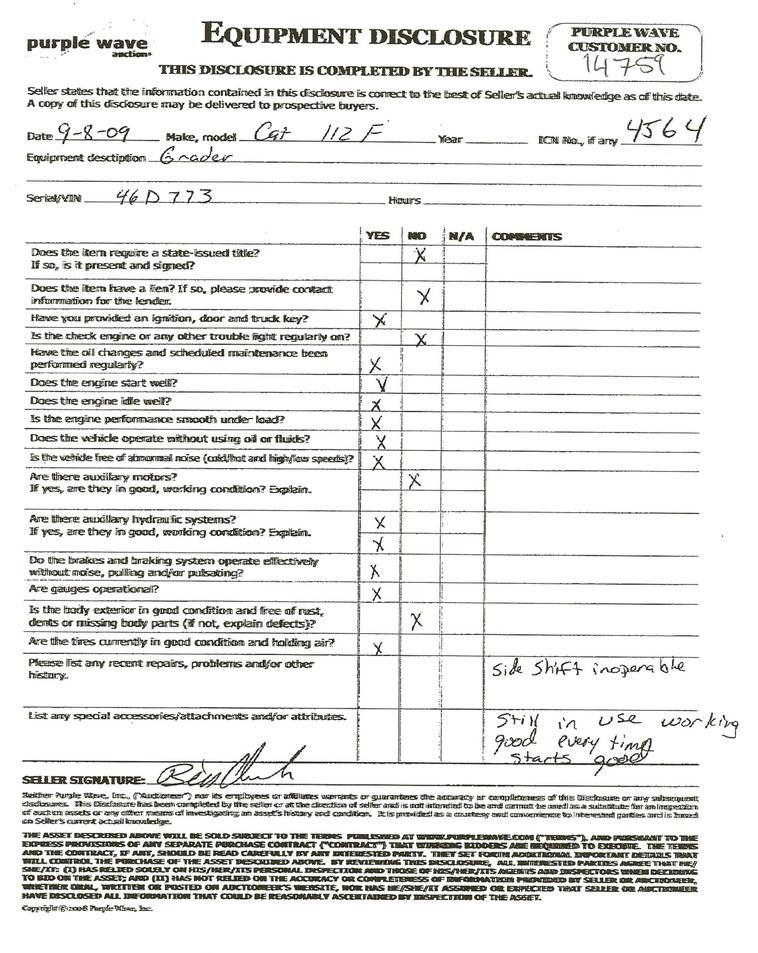 purple wave
auction®
EQUIPMENT DISCLOSURE
PURPLE WAVE
CUSTOMER NO.
14759
THIS DISCLOSURE IS COMPLETED BY THE SELLER.
Seller states that the information contained in this disclosure is correct to the best of Seller's actual knowledge as of this date.
A copy of this disclosure may be delivered to prospective buyers.
Date 9-8-09 Make, model Cat 112 F Year ICN No., if any 4564
Equipment description Grader
Serial/VIN 46D773 Hours
YES NO N/A COMMENTS
Does the item require a state-issued title? X
If so, is it present and signed?
Does the item have a lien? If so, please provide contact
information for the lender. X
Have you provided an ignition, door and truck key? X
Is the check engine or any other trouble light regularly on? X
Have the oil changes and scheduled maintenance been
performed regularly? X
Does the engine start well? X
Does the engine idle well? X
Is the engine performance smooth under load? X
Does the vehicle operate without using oil or fluids? X
Is the vehicle free of abnormal noise (cold/hot and high/low speeds)? X
Are there auxiliary motors? X
If yes, are they in good, working condition? Explain.
Are there auxiliary hydraulic systems? X
If yes, are they in good, working condition? Explain. X
Do the brakes and braking system operate effectively
without noise, pulling and/or pulsating? X
Are gauges operational? X
Is the body exterior in good condition and free of rust,
dents or missing body parts (if not, explain defects)? X
Are the tires currently in good condition and holding air? X
Please list any recent repairs, problems and/or other Side Shift inoperable
history.
List any special accessories/attachments and/or attributes. Still in use working
good every time
starts good
SELLER SIGNATURE:
Neither Purple Wave, Inc., ("Auctioneer") nor its employees or affiliates warrants or guarantees the accuracy or completeness of this Disclosure or any subsequent
disclosures. This Disclosure has been completed by the seller or at the direction of seller and is not intended to be and cannot be used as a substitute for an inspection
of auction assets or any other means of investigating an asset's history and condition. It is provided as a courtesy and convenience to interested parties and is based
on Seller's current actual knowledge.
THE ASSET DESCRIBED ABOVE WILL BE SOLD SUBJECT TO THE TERMS PUBLISHED AT WWW.PURPLEWAVE.COM ("TERMS"), AND PURSUANT TO THE
EXPRESS PROVISIONS OF ANY SEPARATE PURCHASE CONTRACT ("CONTRACT") THAT WINNING BIDDERS ARE REQUIRED TO EXECUTE. THE TERMS
AND THE CONTRACT, IF ANY, SHOULD BE READ CAREFULLY BY ANY INTERESTED PARTY. THEY SET FORTH ADDITIONAL IMPORTANT DETAILS THAT
WILL CONTROL THE PURCHASE OF THE ASSET DESCRIBED ABOVE. BY REVIEWING THIS DISCLOSURE, ALL INTERESTED PARTIES AGREE THAT HE/
SHE/IT: (I) HAS RELIED SOLELY ON HIS/HER/ITS PERSONAL INSPECTION AND THOSE OF HIS/HER/ITS AGENTS AND INSPECTORS WHEN DECIDING
TO BID ON THE ASSET; AND (II) HAS NOT RELIED ON THE ACCURACY OR COMPLETENESS OF INFORMATION PROVIDED BY SELLER OR AUCTIONEER,
WHETHER ORAL, WRITTEN OR POSTED ON AUCTIONEER'S WEBSITE, NOR HAS HE/SHE/IT ASSUMED OR EXPECTED THAT SELLER OR AUCTIONEER
HAVE DISCLOSED ALL INFORMATION THAT COULD BE REASONABLY ASCERTAINED BY INSPECTION OF THE ASSET.
Copyright © 2008 Purple Wave, Inc.